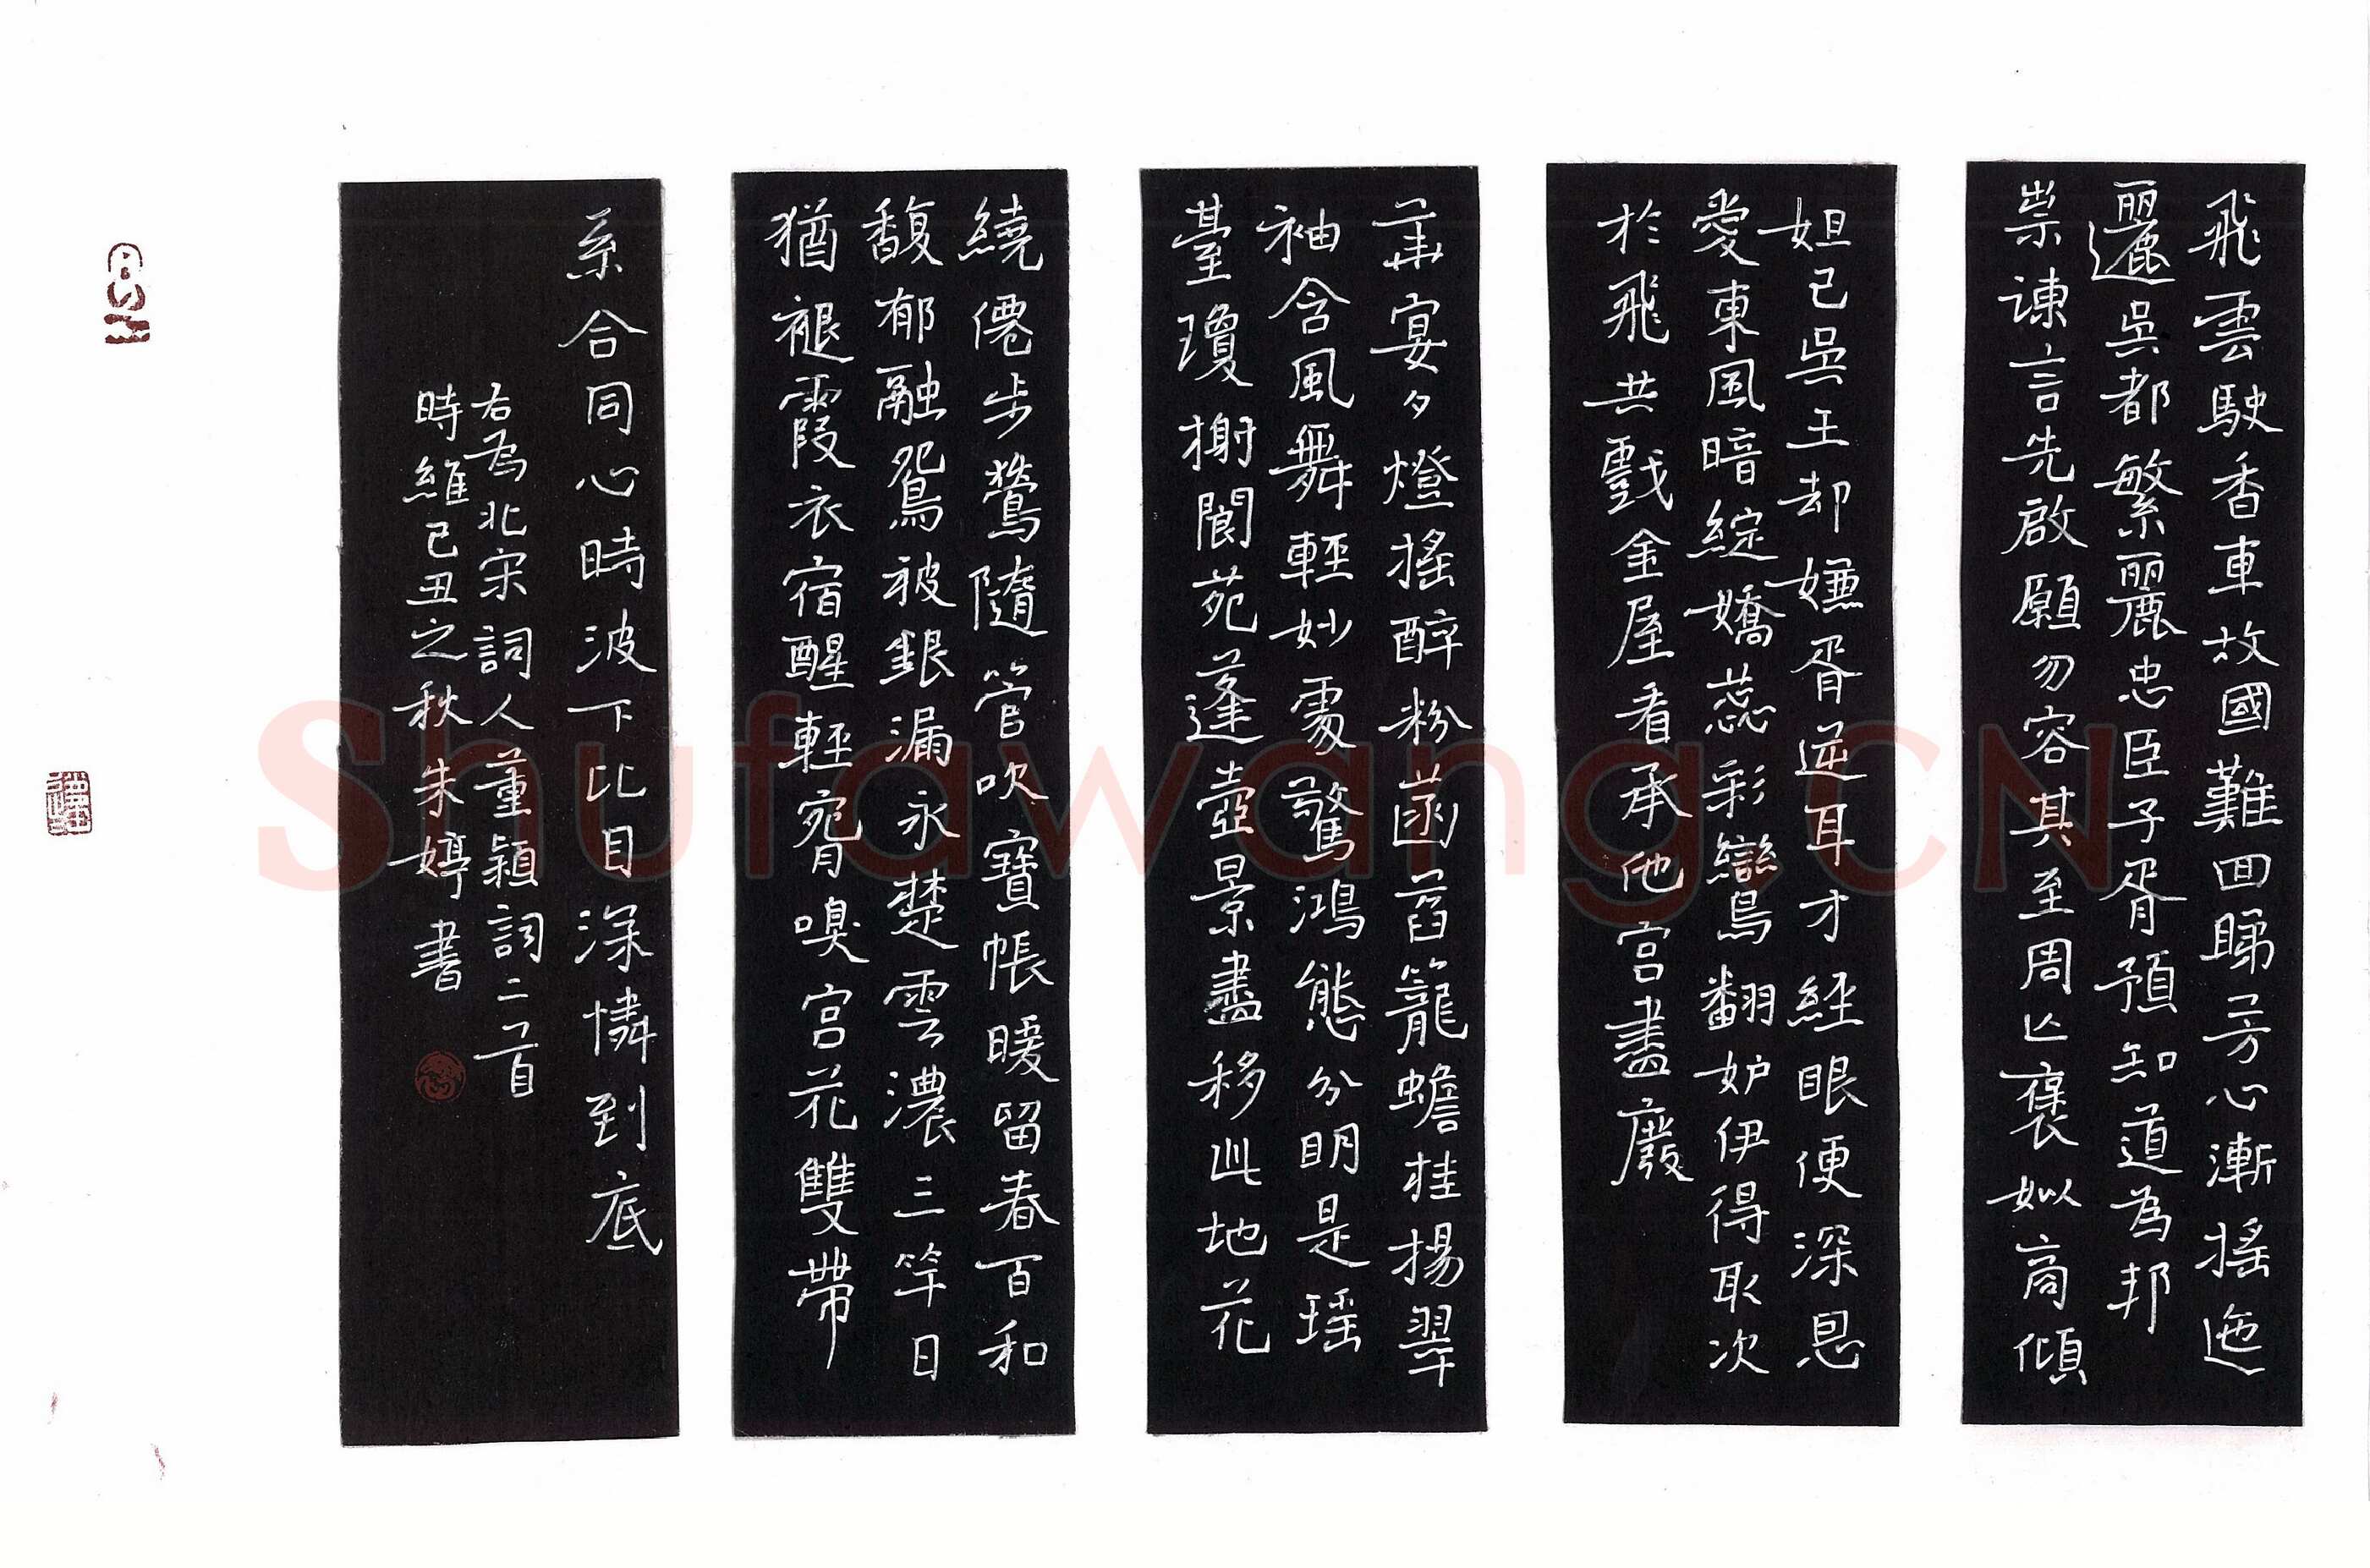 飛雲駛香車故國難回睇芳心漸搖迤
邐吳都繁麗忠臣子胥預知道為邦
祟諫言先啟願勿容其至周亡褒姒商傾
妲己吳王却嫌胥逆耳才經眼便深恩
愛東風暗綻嬌蕊彩鸞翻妒伊得取次
於飛共戲金屋看承他宮盡廢
華宴夕燈搖醉粉菡萏籠蟾桂揚翠
袖含風舞輕妙處驚鴻態分明是瑶
臺瓊榭閬苑蓬壺景盡移此地花
繞僊步鶯隨管吹寶帳暖留春百和
馥郁融鴛被銀漏永楚雲濃三竿日
猶褪霞衣宿酲輕腕嗅宮花雙帶
系合同心時波下比目深憐到底
右為北宋詞人董穎詞二首
時維己丑之秋朱婷書
Shufawang.CN